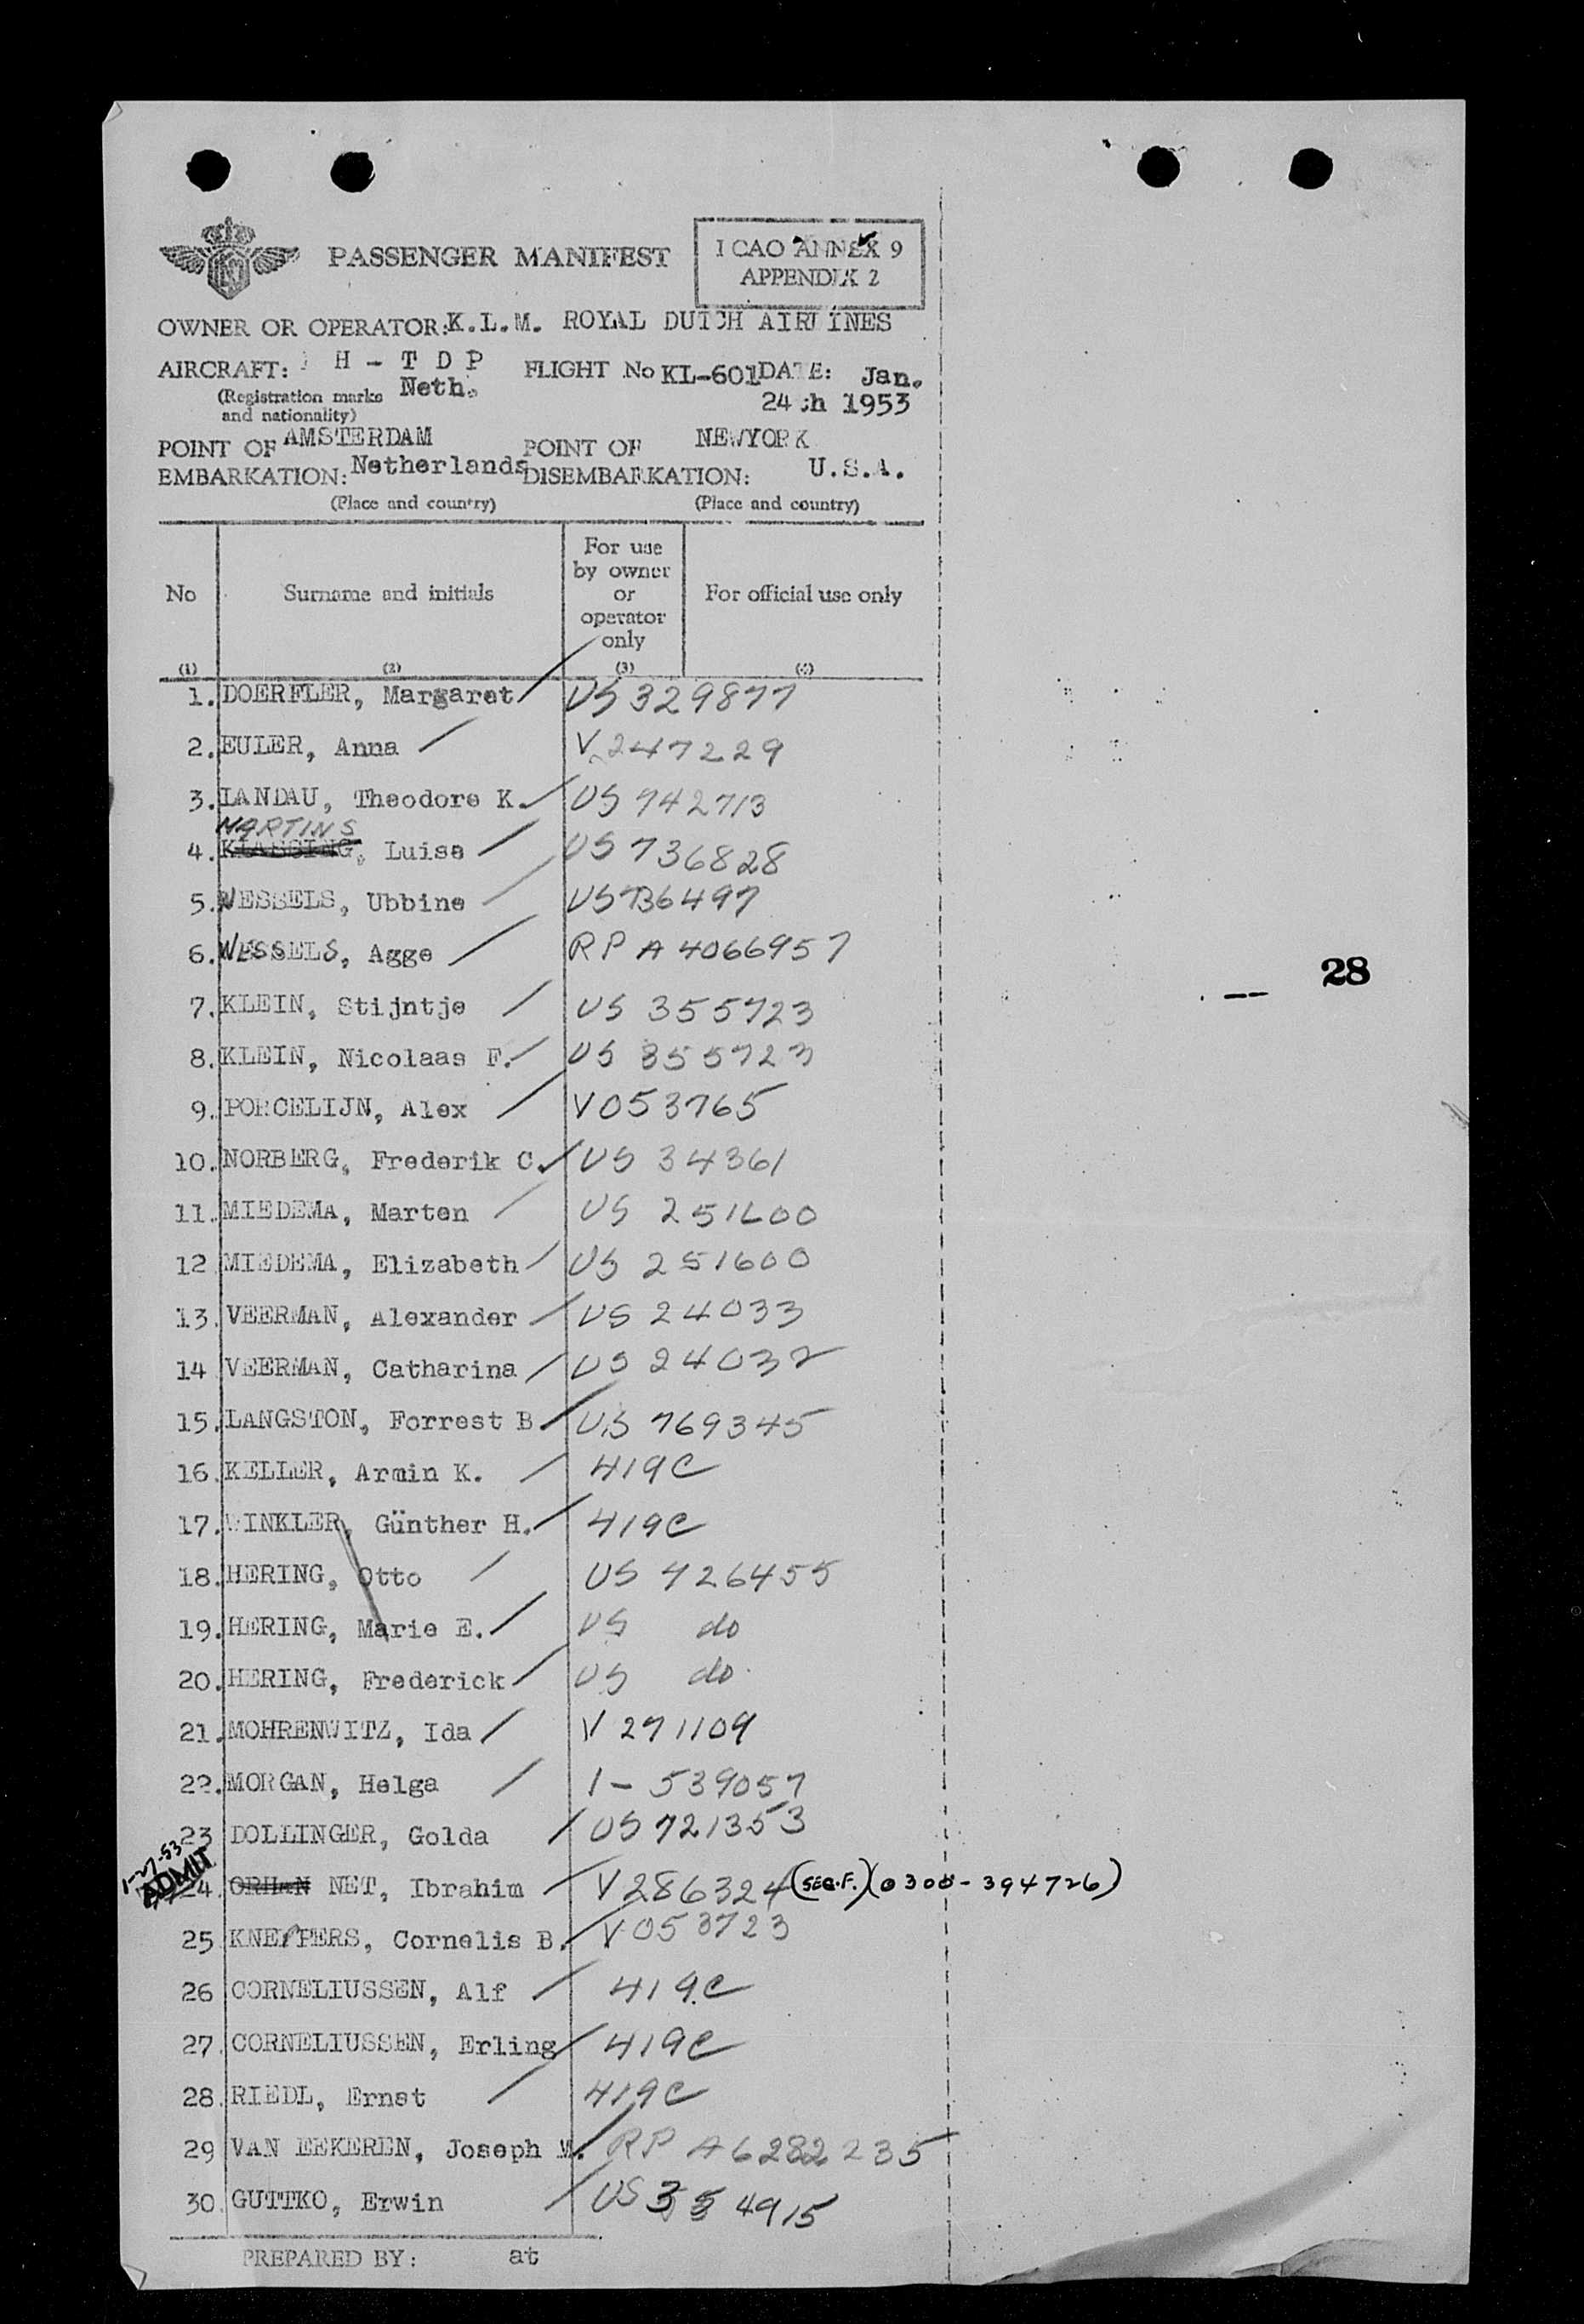 PASSENGER MANIFEST
ICAO ANNEX 9
APPENDIX 2
OWNER OR OPERATOR: K.L.M. ROYAL DUTCH AIRLINES
AIRCRAFT: H - T D P FLIGHT No KL-601 DATE: Jan.
(Registration marks Neth. 24th 1953
and nationality)
POINT OF AMSTERDAM POINT OF NEWYORK
EMBARKATION: Netherlands DISEMBARKATION: U.S.A.
(Place and country) (Place and country)
No Surname and initials For use by owner or operator only For official use only
(1) (2) (3) (4)
1. DOERFLER, Margaret US 329877
2. EULER, Anna V 247229
3. LANDAU, Theodore K. US 742713
MARTINS
4. KLASSING, Luise US 736828
5. WESSELS, Ubbine US 736497
6. WESSELS, Agge RP A 4066957
7. KLEIN, Stijntje US 355723
8. KLEIN, Nicolaas F. US 355723
9. PORCELIJN, Alex V 053765
10. NORBERG, Frederik C. US 34361
11. MIEDEMA, Marten US 251600
12 MIEDEMA, Elizabeth US 251600
13. VEERMAN, Alexander US 24033
14 VEERMAN, Catharina US 24032
15. LANGSTON, Forrest B US 769345
16. KELLER, Armin K. 419C
17. WINKLER, Günther H. 419C
18. HERING, Otto US 726455
19. HERING, Marie E. US do
20. HERING, Frederick US do.
21. MOHRENWITZ, Ida V 271109
22. MORGAN, Helga 1-539057
23 DOLLINGER, Golda US 721353
1-27-53
ADMIT
24. ORHAN NET, Ibrahim V 286324 (SEC.F.) (0300-394726)
25 KNEIPERS, Cornelis B. V 053723
26 CORNELIUSSEN, Alf 419C
27. CORNELIUSSEN, Erling 419C
28. RIEDL, Ernst 419C
29 VAN EEKEREN, Joseph M. RP A6282235
30. GUTTKO, Erwin US 354915
PREPARED BY: at
28